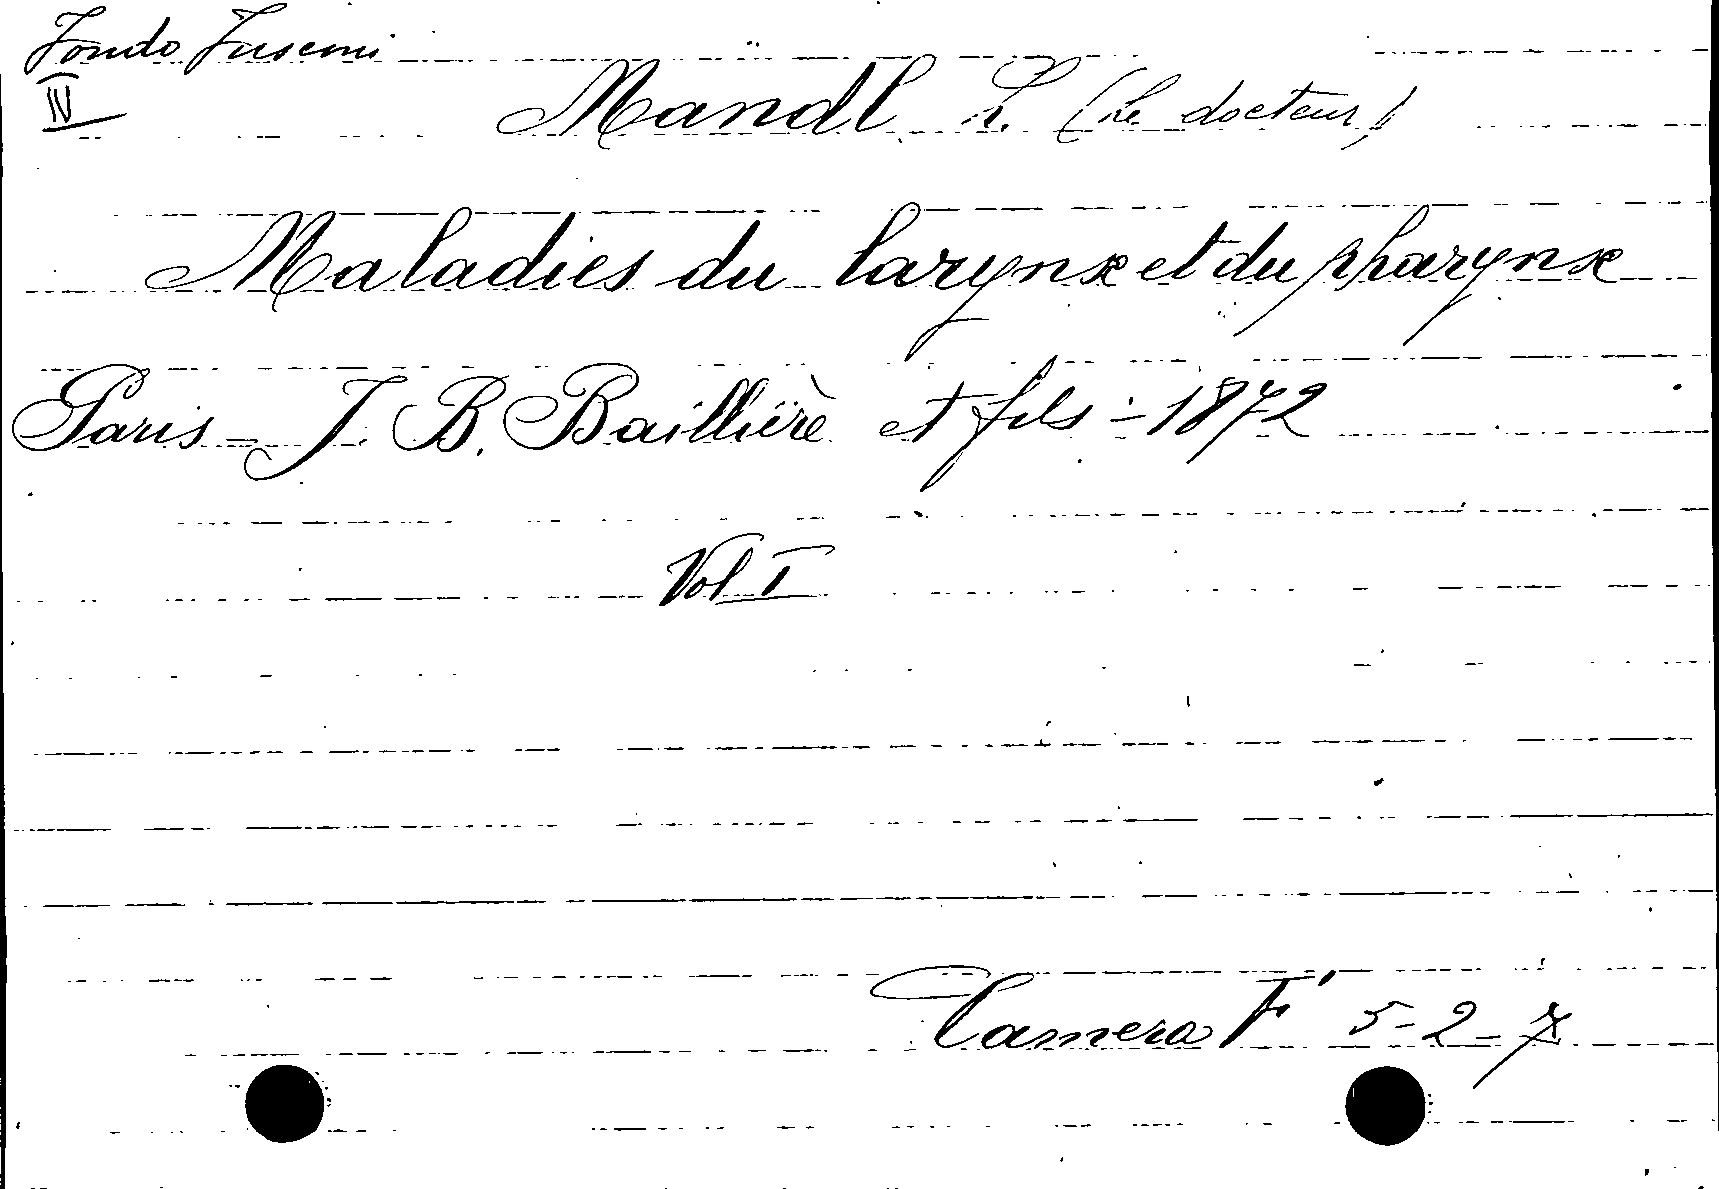 Fondo Fusemi
IV
Mandl L. (Le docteur)
Maladies du larynx et du pharynx
Paris - J. B. Baillière et fils - 1872
Vol I
Camera F' 5-2-7